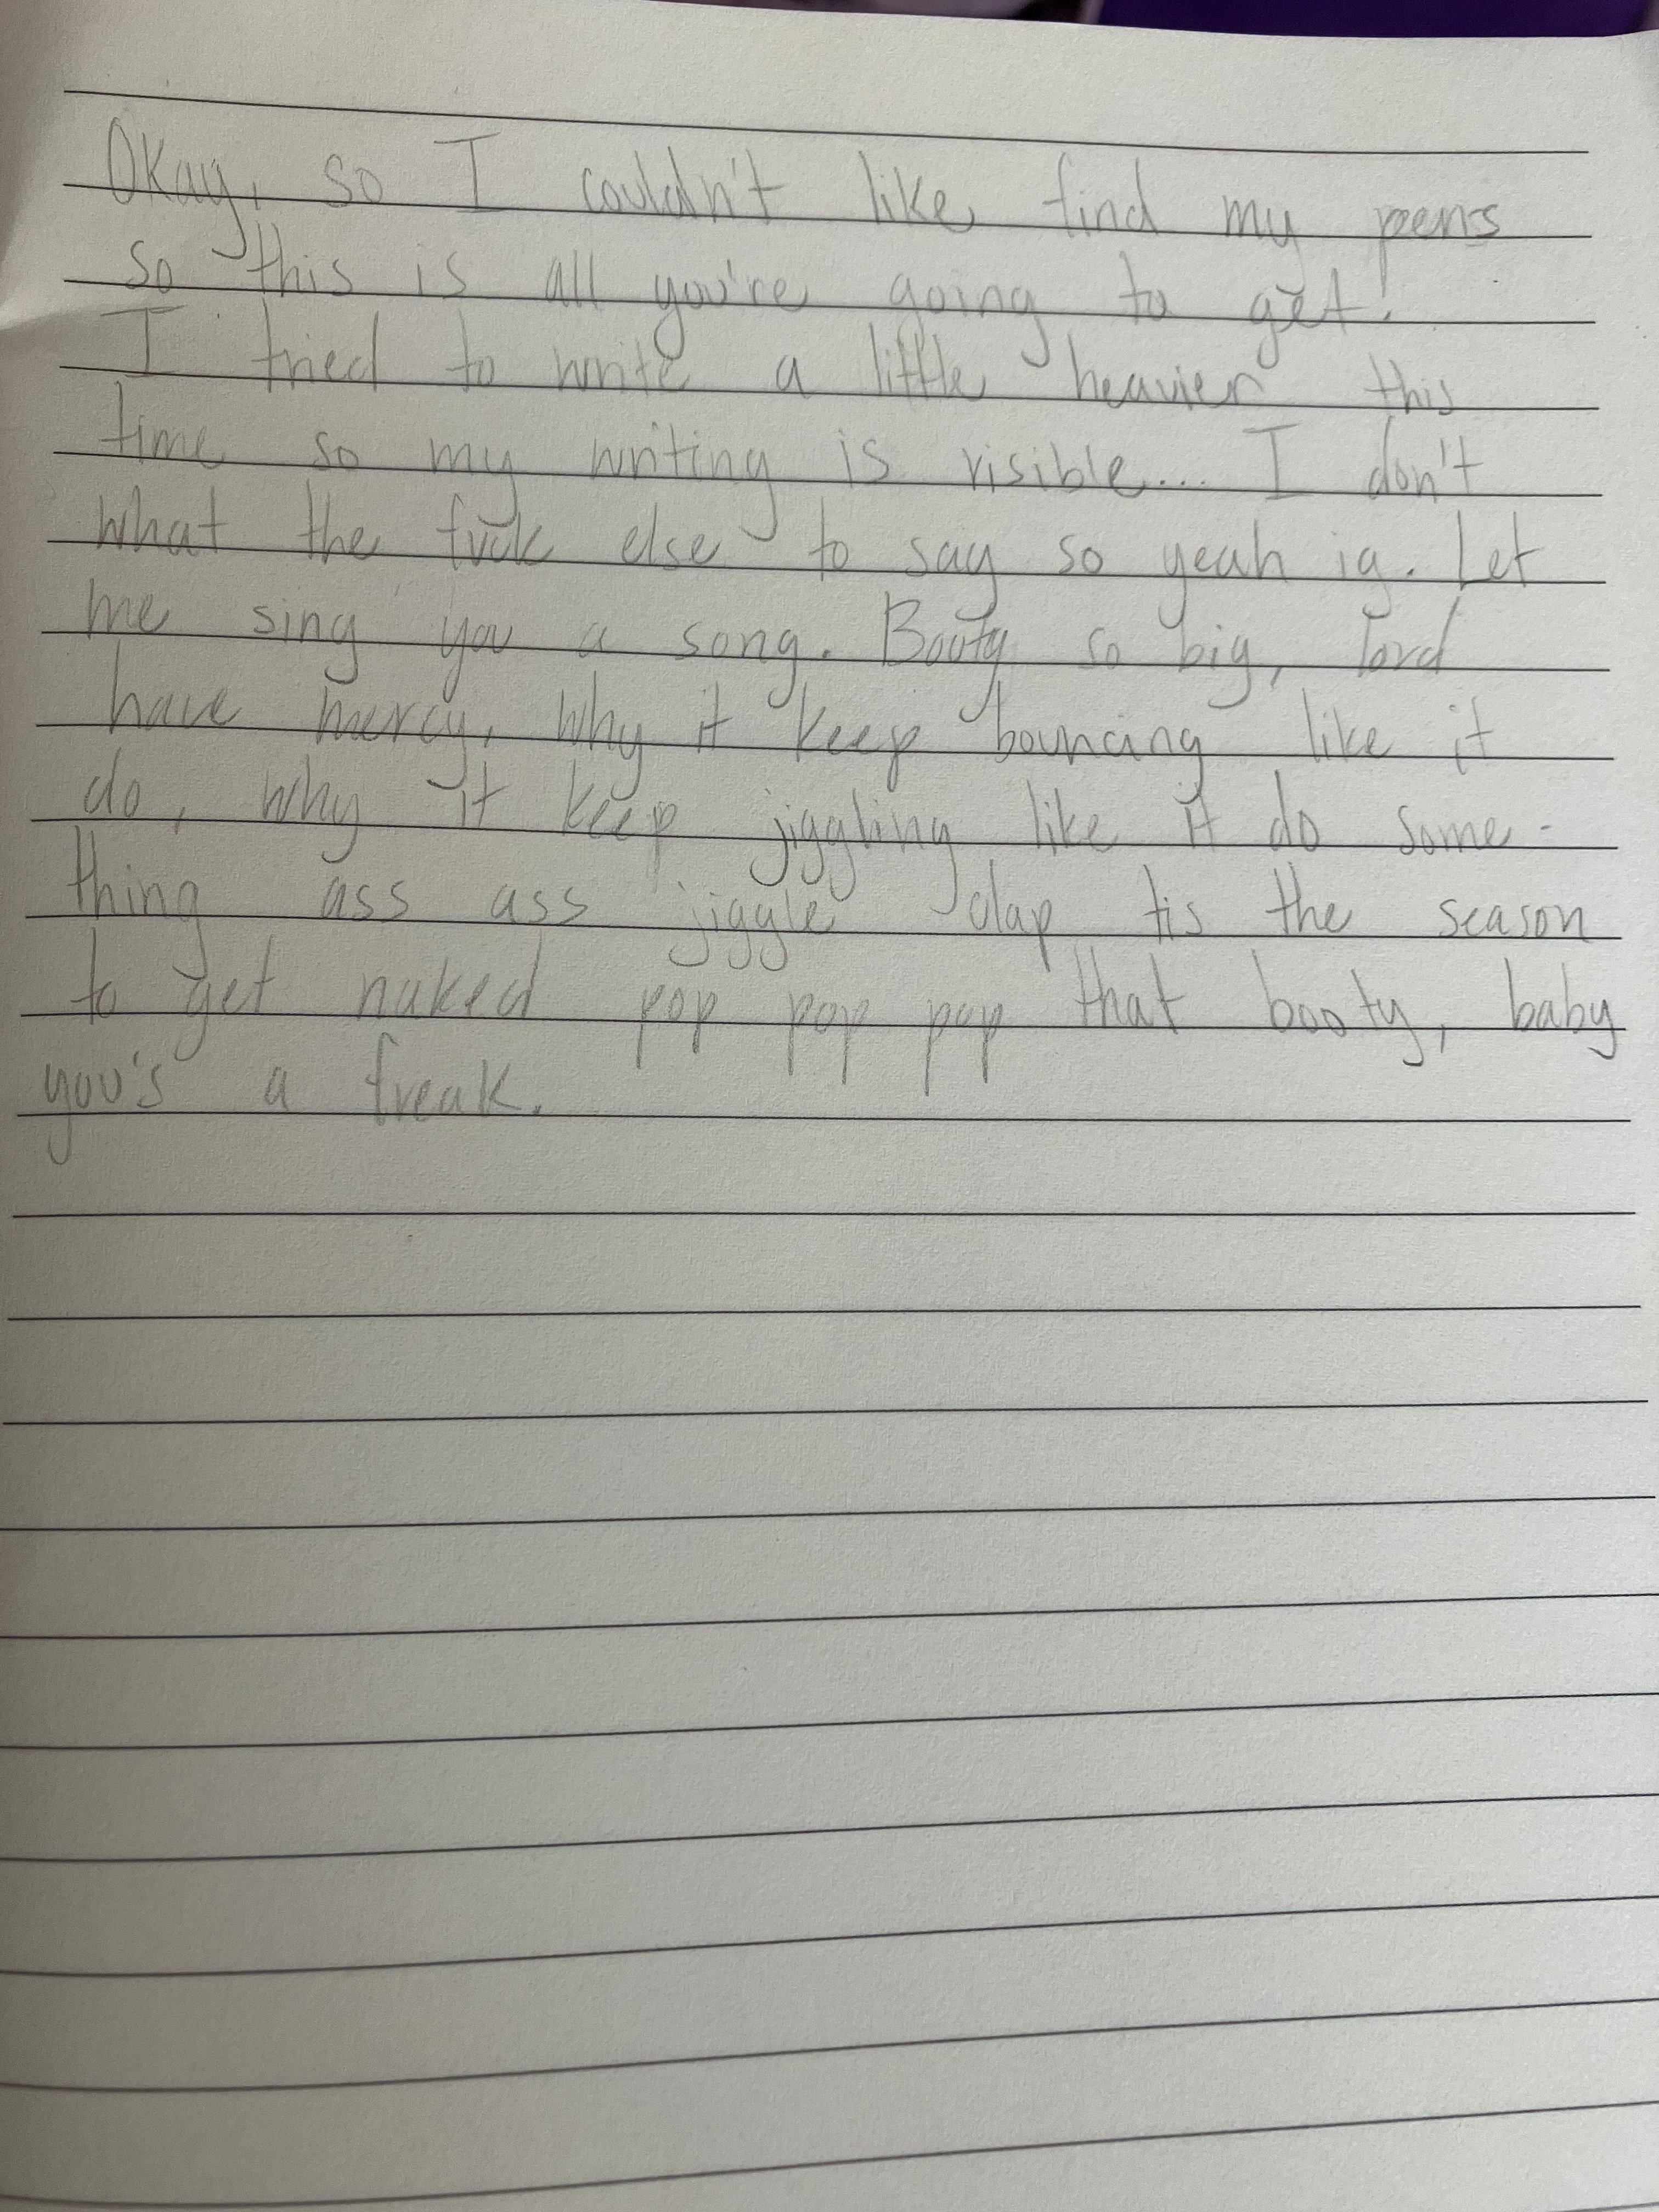 Okay, so I couldn't like find my pens
so this is all you're going to get.
I tried to write a little heavier this
time so my writing is visible... I don't
what the fuck else to say so yeah ig. Let
me sing you a song. Booty so big, lord
have mercy, why it keep bouncing like it
do, why it keep jiggling like it do some-
thing ass ass jiggle clap tis the season
to get naked pop pop pop that booty, baby
you's a freak.